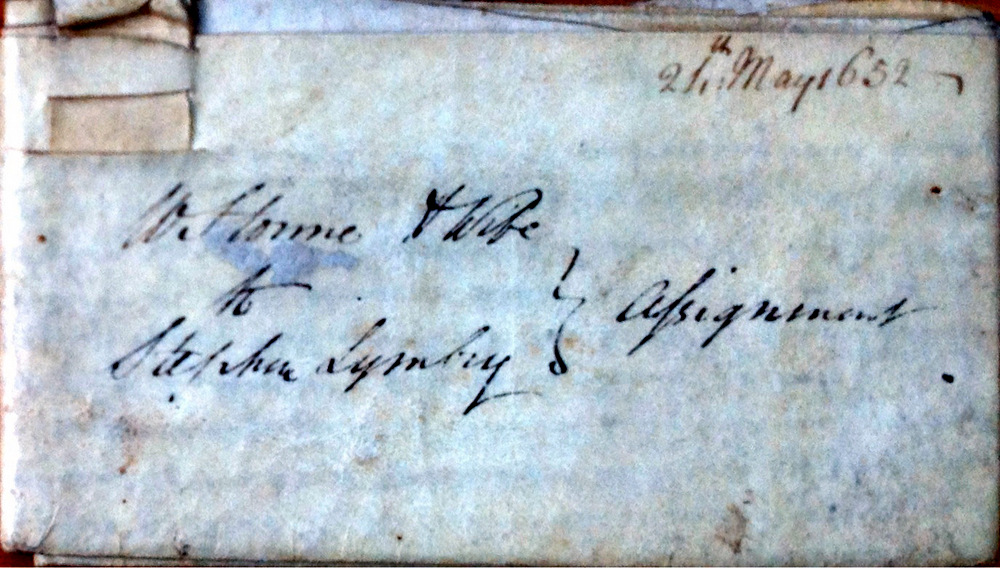 24th May 1652
Wm Horne & Wife
to
Stephen Lymbry
} Assignment